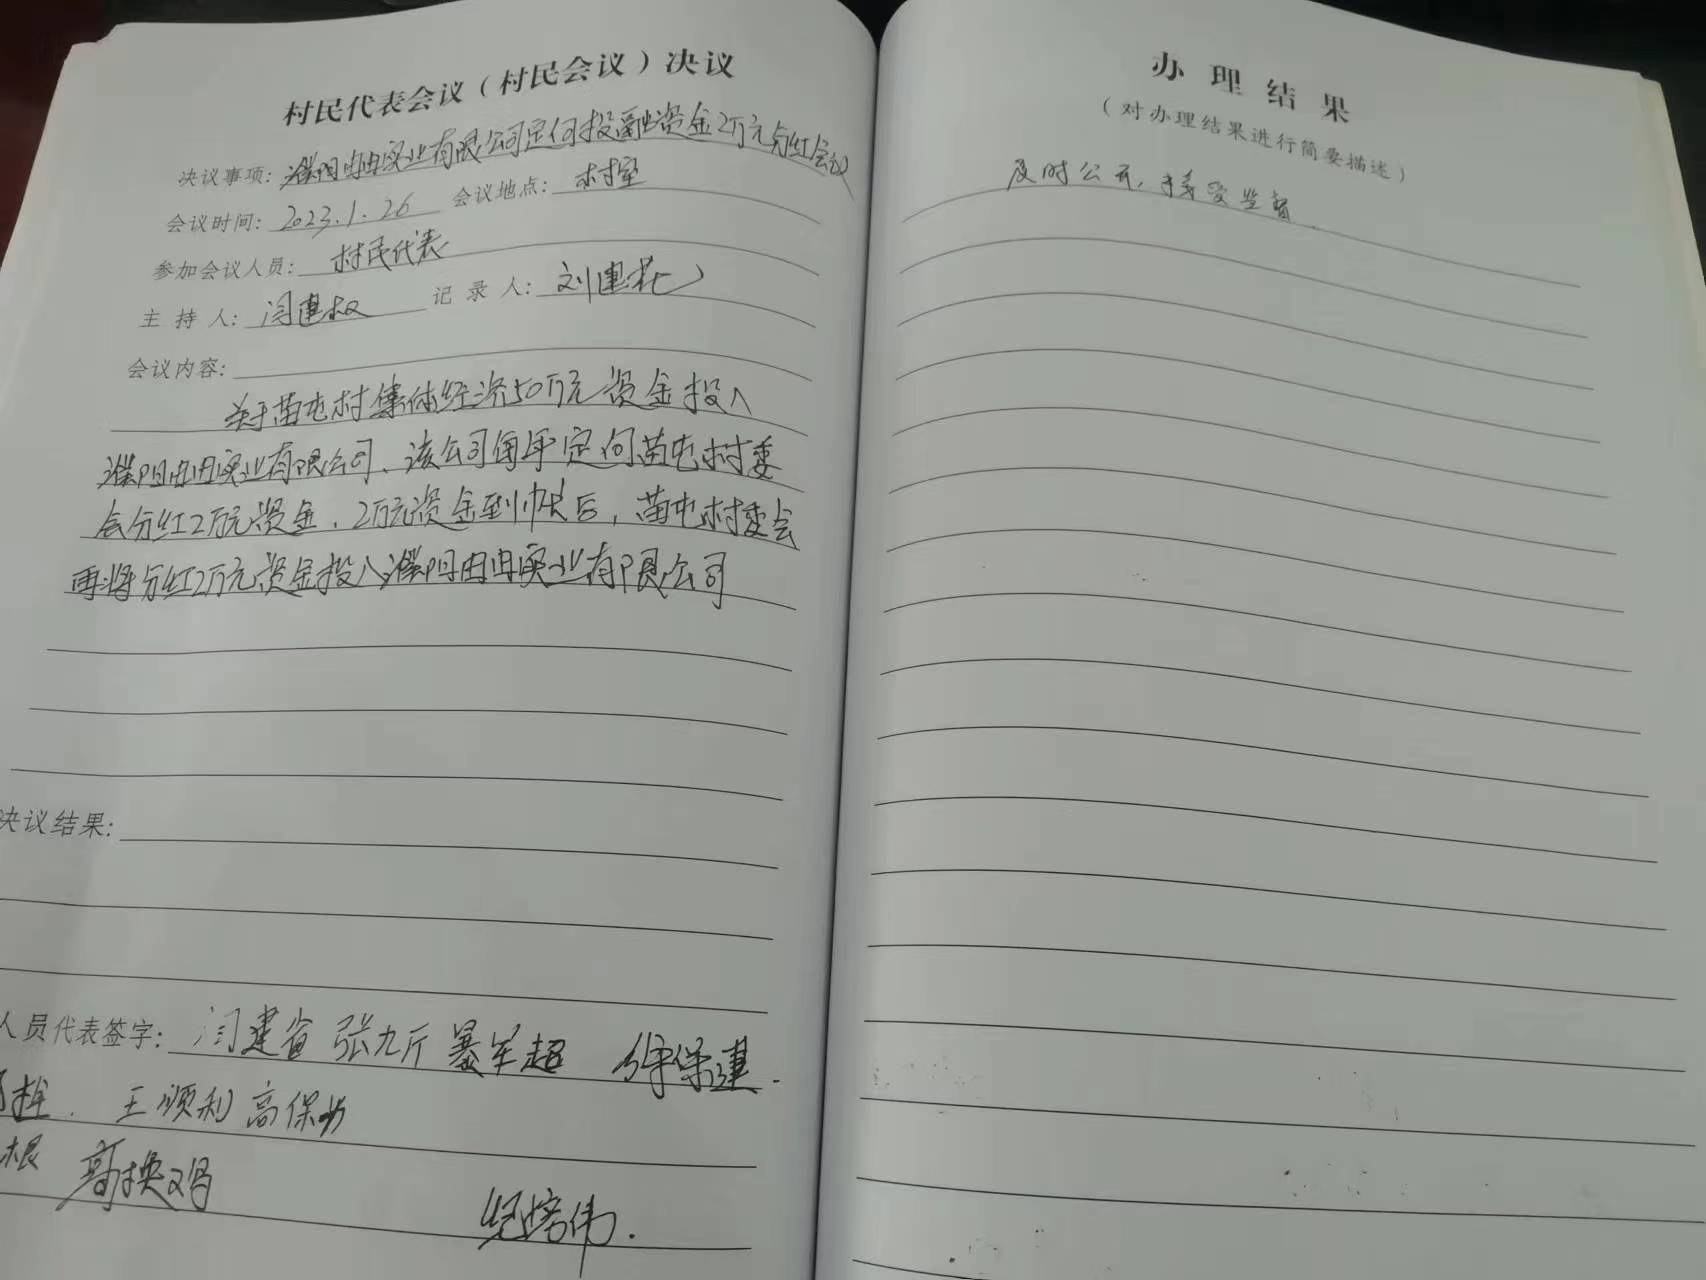 村民代表会议（村民会议）决议
决议事项：濮阳由由实业有限公司定向投融资金2万元分红会议
会议时间：2023.1.26 会议地点：村室
参加会议人员：村民代表
主持人：闫建叔 记录人：刘建花
会议内容：
关于苗屯村集体经济50万元资金投入
濮阳由由实业有限公司、该公司每年定向苗屯村委
会分红2万元资金，2万元资金到帐后，苗屯村委会
再将分红2万元资金投入濮阳由由实业有限公司
决议结果：
人员代表签字：闫建省 张九斤 暴军超 徐保建.
王顺利 高保
根 高换鸡
纪培伟.
办理结果
（对办理结果进行简要描述）
及时公开，接受监督